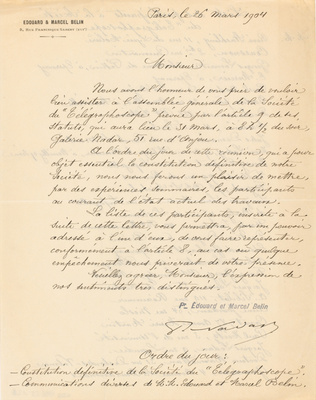 EDOUARD & MARCEL BELIN
Paris, le 26 Mars 1904
Monsieur
Nous avons l'honneur de vous prier de vouloir
bien assister à l'assemblée générale de la Société
du "Télégraphoscope" prévue par l'article 9 de ses
Statuts, qui aura lieu le 31 mars, à 8h 1/2 du soir
Galerie Nadar, 51 rue d'Anjou.
A l'ordre du jour de cette réunion, qui a pour
objet essentiel la constitution définitive de notre
Société, nous nous ferons un plaisir de mettre,
par des expériences sommaires, les participants
au courant de l'état actuel des travaux.
La liste de ces participants, insérée à la
suite de cette lettre, vous permettra, par un pouvoir
adressé à l'un d'eux, de vous faire représenter,
conformément à l'article 9, au cas où quelque
empêchement nous priverait de votre présence.
Veuillez agréer, Monsieur, l'expression de
nos sentiments très distingués.
Pr. Edouard et Marcel Belin
Nadar
Ordre du jour:
- Constitution définitive de la Société du "Télégraphoscope".
- Communications diverses de M.M. Edouard et Marcel Belin.